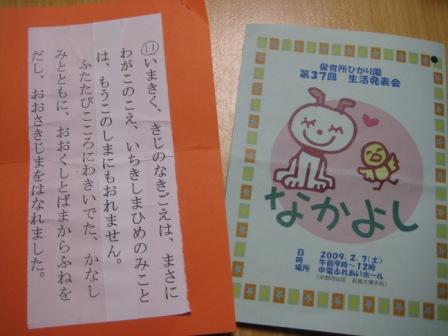 ⑪いまきく、きじのなきごえは、まさに
わがこのこえ、いちきしまひめのみこと
は、もうこのしまにもおれません。
ふたたびこころにわきいでた、かなし
みとともに、おおくしとばまからふねを
だし、おおさきじまをはなれました。
保育所ひかり園
第37回 生活発表会
なかよし
日時 2009.2.7(土)
午前9時〜12時
場所 中電ふれあいホール